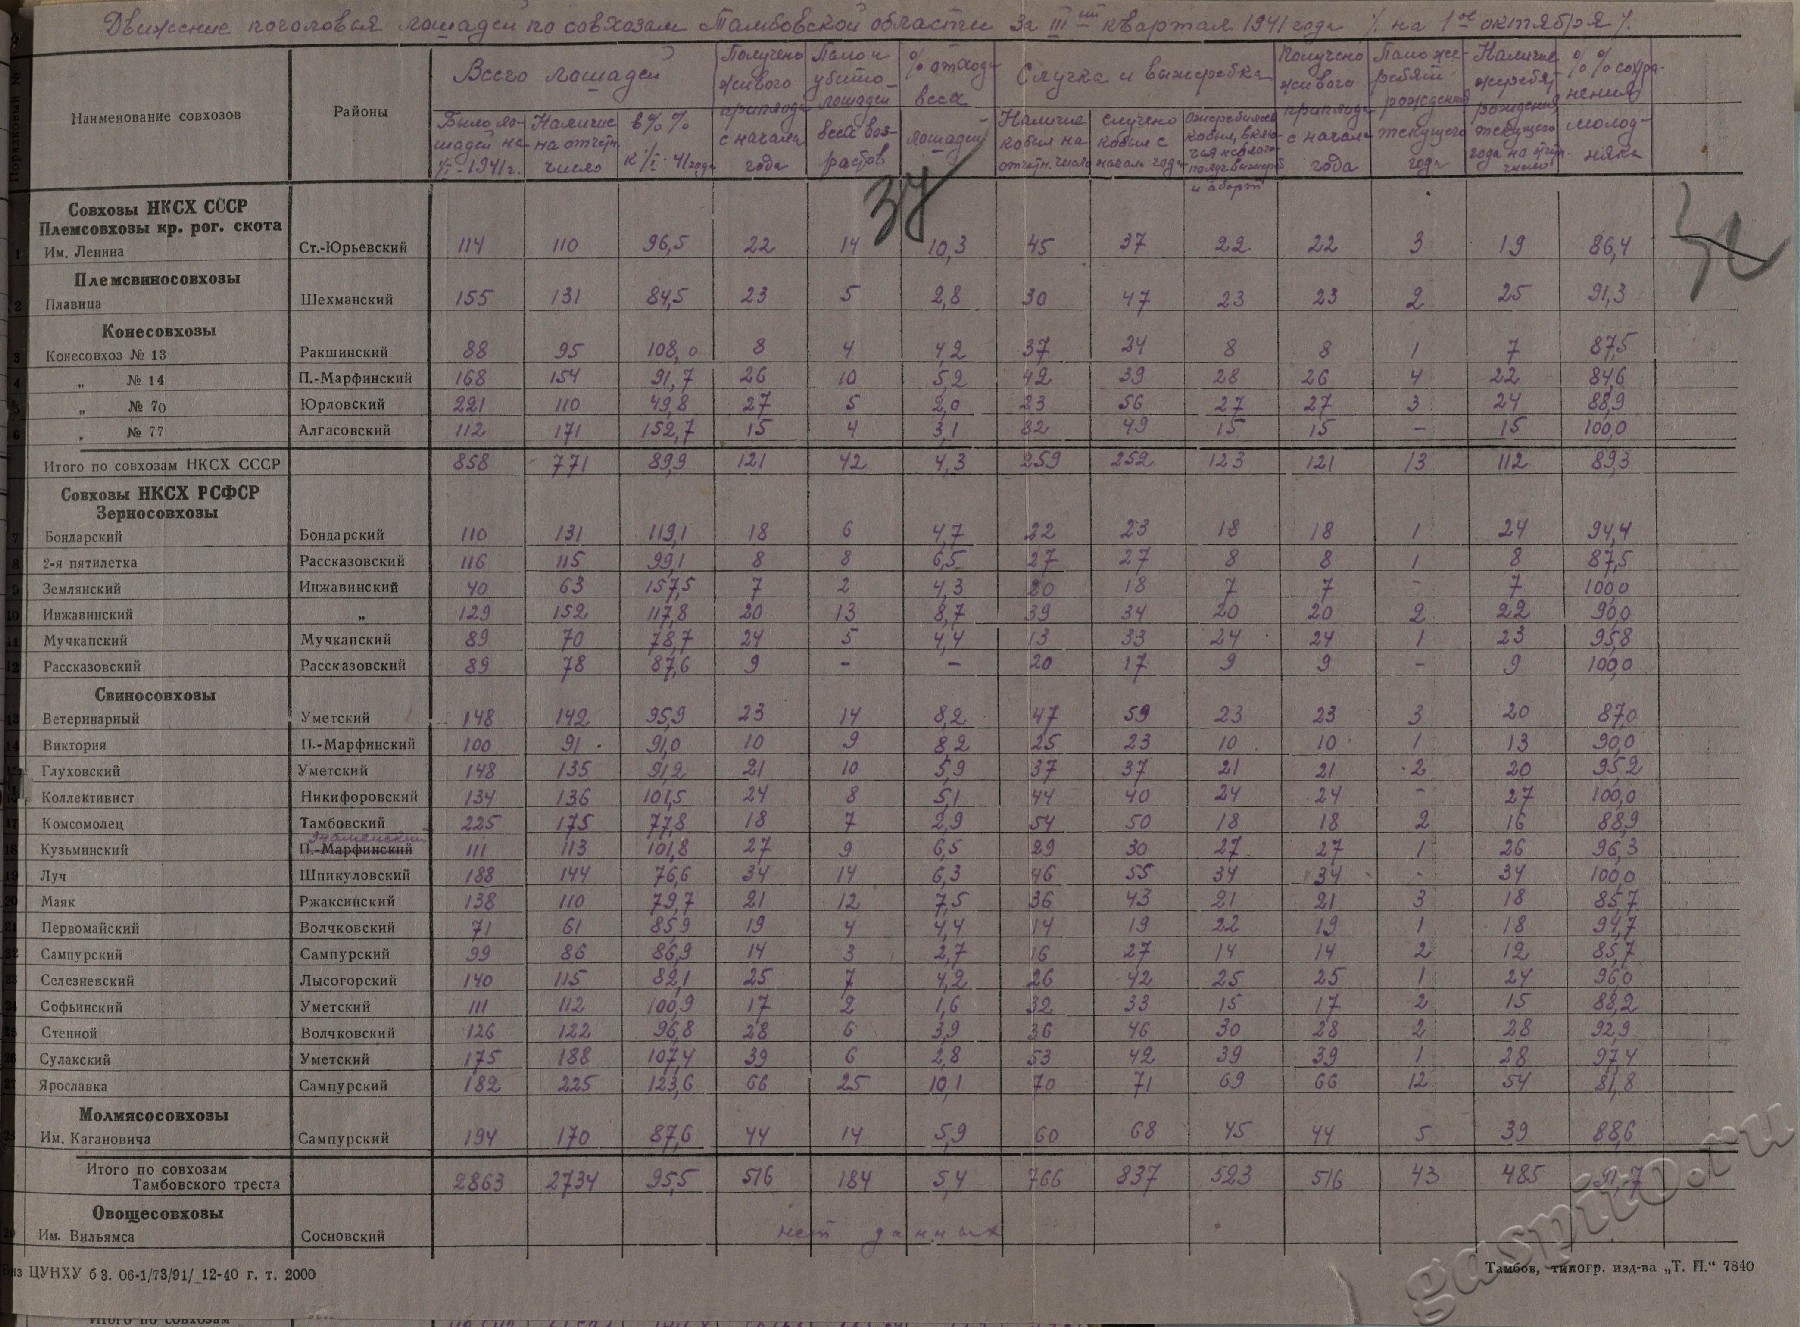 Движение поголовья лошадей по совхозам Тамбовской области за III ий квартал 1941 года /. на 1ое октября /.
Наименование совхозов Районы Всего лошадей Получено живого приплода с начала года Пало и убито лошадей всех возрастов % отхода всех лошадей Случка и выжеребка Получено живого приплода с начала года Пало жеребят рождения текущего года Наличие жеребят рождения текущего года на отчетн. число % % сохранения молодняка
Было лошадей на 1/I-1941г. Наличие на отчетн. число в % % к 1/I-41 года Наличие кобыл на отчетн. число Случено кобыл с начала года Ожеребилось кобыл, включая неблагополучн. выжереб. и аборт
37
Совхозы НКСХ СССР
Племсовхозы кр. рог. скота
1 Им. Ленина Ст.-Юрьевский 114 110 96,5 22 14 10,3 45 37 22 22 3 19 86,4
Племсвиносовхозы
2 Плавица Шехманский 155 131 84,5 23 5 2,8 30 47 23 23 2 25 91,3
Конесовхозы
3 Конесовхоз № 13 Ракшинский 88 95 108,0 8 4 4,2 37 24 8 8 1 7 87,5
4 „ № 14 П.-Марфинский 168 154 91,7 26 10 5,2 42 39 28 26 4 22 84,6
5 „ № 70 Юрловский 221 110 49,8 27 5 2,0 23 56 27 27 3 24 88,9
6 „ № 77 Алгасовский 112 171 152,7 15 4 3,1 82 49 15 15 - 15 100,0
Итого по совхозам НКСХ СССР 858 771 89,9 121 42 4,3 259 252 123 121 13 112 89,3
Совхозы НКСХ РСФСР
Зерносовхозы
7 Бондарский Бондарский 110 131 119,1 18 6 4,7 22 23 18 18 1 24 94,4
8 2-я пятилетка Рассказовский 116 115 99,1 8 8 6,5 27 27 8 8 1 8 87,5
9 Землянский Инжавинский 40 63 157,5 7 2 4,3 20 18 7 7 - 7 100,0
10 Инжавинский „ 129 152 117,8 20 13 8,7 39 34 20 20 2 22 90,0
11 Мучкапский Мучкапский 89 70 78,7 24 5 4,4 13 33 24 24 1 23 95,8
12 Рассказовский Рассказовский 89 78 87,6 9 - - 20 17 9 9 - 9 100,0
Свиносовхозы
13 Ветеринарный Уметский 148 142 95,9 23 14 8,2 47 59 23 23 3 20 87,0
14 Виктория П.-Марфинский 100 91 91,0 10 9 8,2 25 23 10 10 1 13 90,0
15 Глуховский Уметский 148 135 91,2 21 10 5,9 37 37 21 21 2 20 95,2
16 Коллективист Никифоровский 134 136 101,5 24 8 5,1 44 40 24 24 - 27 100,0
17 Комсомолец Тамбовский 225 175 77,8 18 7 2,9 54 50 18 18 2 16 88,9
Знаменский
18 Кузьминский П.-Марфинский 111 113 101,8 27 9 6,5 29 30 27 27 1 26 96,3
19 Луч Шпикуловский 188 144 76,6 34 14 6,3 46 55 34 34 - 34 100,0
20 Маяк Ржаксинский 138 110 79,7 21 12 7,5 36 43 21 21 3 18 85,7
21 Первомайский Волчковский 71 61 85,9 19 4 4,4 14 19 22 19 1 18 94,7
22 Сампурский Сампурский 99 86 86,9 14 3 2,7 16 27 14 14 2 12 85,7
23 Селезневский Лысогорский 140 115 82,1 25 7 4,2 26 42 25 25 1 24 96,0
24 Софьинский Уметский 111 112 100,9 17 2 1,6 32 33 15 17 2 15 88,2
25 Степной Волчковский 126 122 96,8 28 6 3,9 36 46 30 28 2 28 92,9
26 Сулакский Уметский 175 188 107,4 39 6 2,8 53 42 39 39 1 28 97,4
27 Ярославка Сампурский 182 225 123,6 66 25 10,1 70 71 69 66 12 54 81,8
Молмясосовхозы
28 Им. Кагановича Сампурский 194 170 87,6 44 14 5,9 60 68 45 44 5 39 88,6
Итого по совхозам
Тамбовского треста 2863 2734 95,5 516 184 5,4 766 837 523 516 43 485 91,7
Овощесовхозы
29 Им. Вильямса Сосновский нет данных
ЦУНХУ б З. 06-1/73/91/ 12-40 г. т. 2000 Тамбов, типогр. изд-ва „Т. П.“ 7840
Итого по совхозам
gaspito.ru